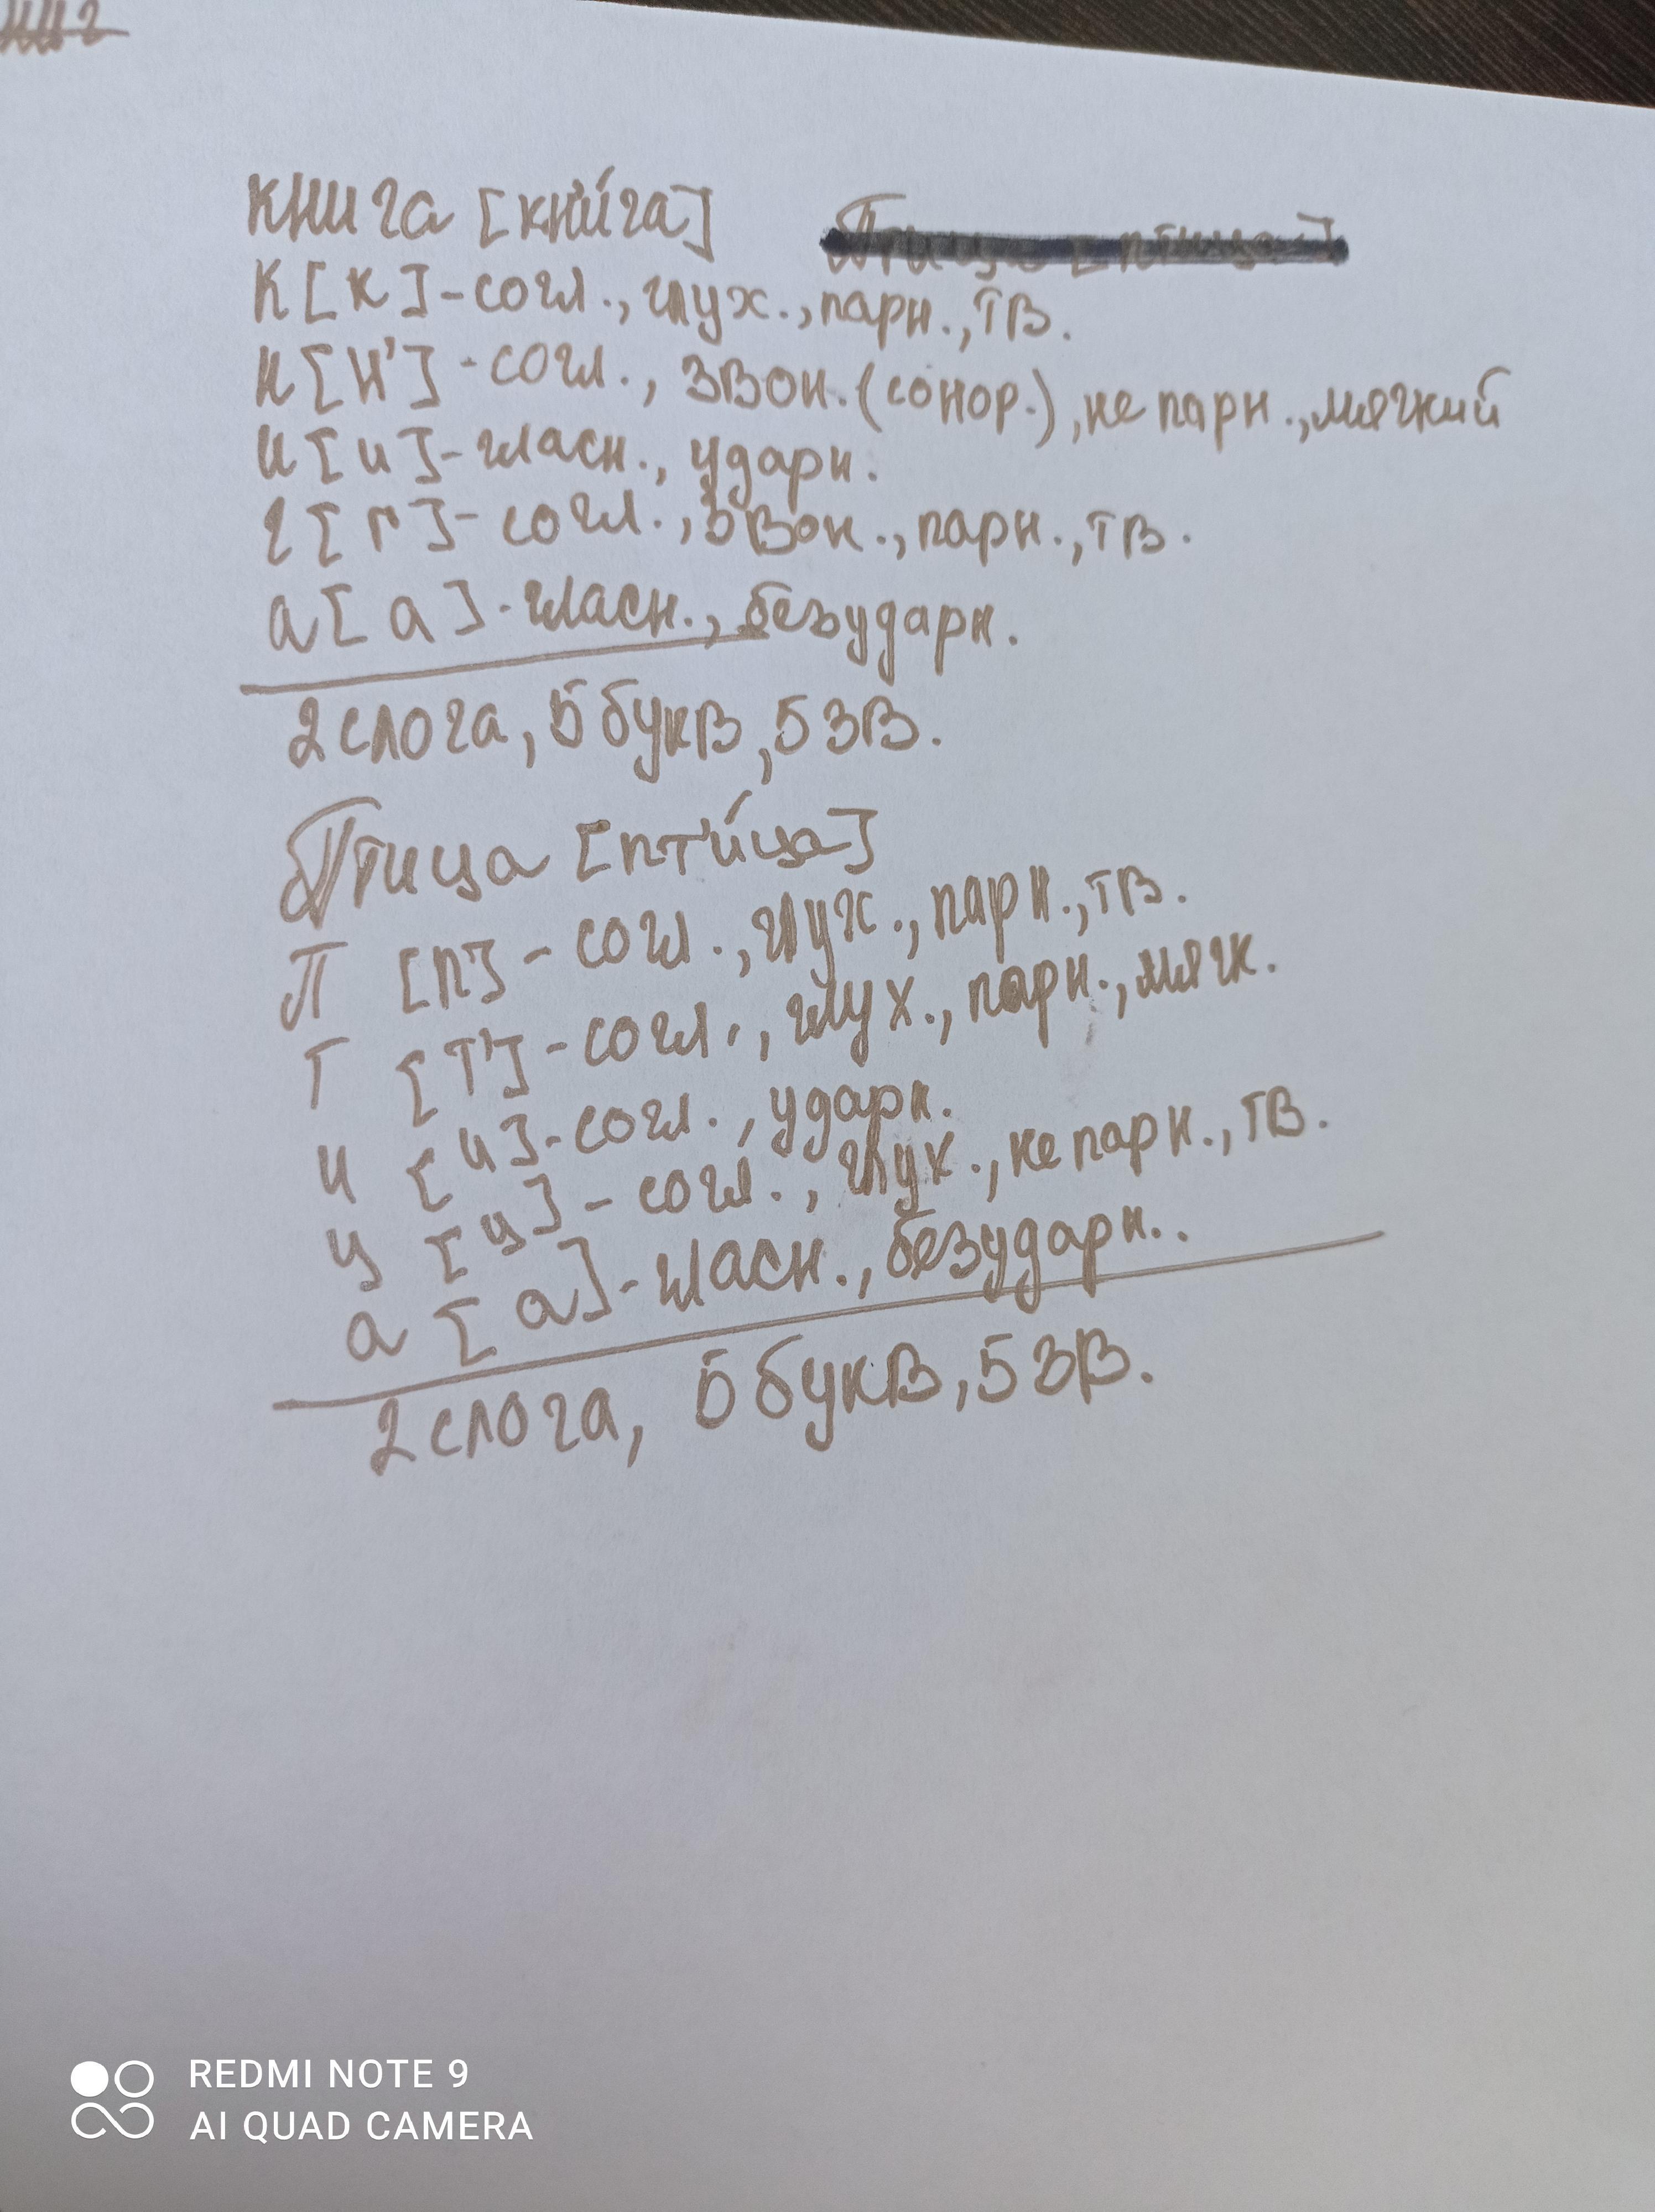 книга [кн'ига]
к [к] - согл., глух., парн., тв.
н [н'] - согл., звон. (сонор.), не парн., мягкий
и [и] - гласн., ударн.
г [г] - согл., звон., парн., тв.
а [а] - гласн., безударн.
2 слога, 5 букв, 5 зв.
Птица [пт'и́ца]
П [п] - согл., глух., парн., тв.
т [т'] - согл., глух., парн., мягк.
и [и] - согл., ударн.
ц [ц] - согл., глух., не парн., тв.
а [а] - гласн., безударн..
2 слога, 5 букв, 5 зв.
REDMI NOTE 9
AI QUAD CAMERA